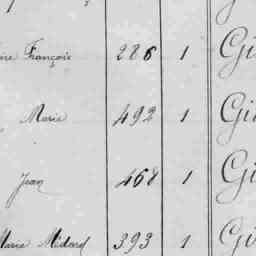 François 286 1
Marie 492 1
Jean 468 1
Marie Médard 393 1